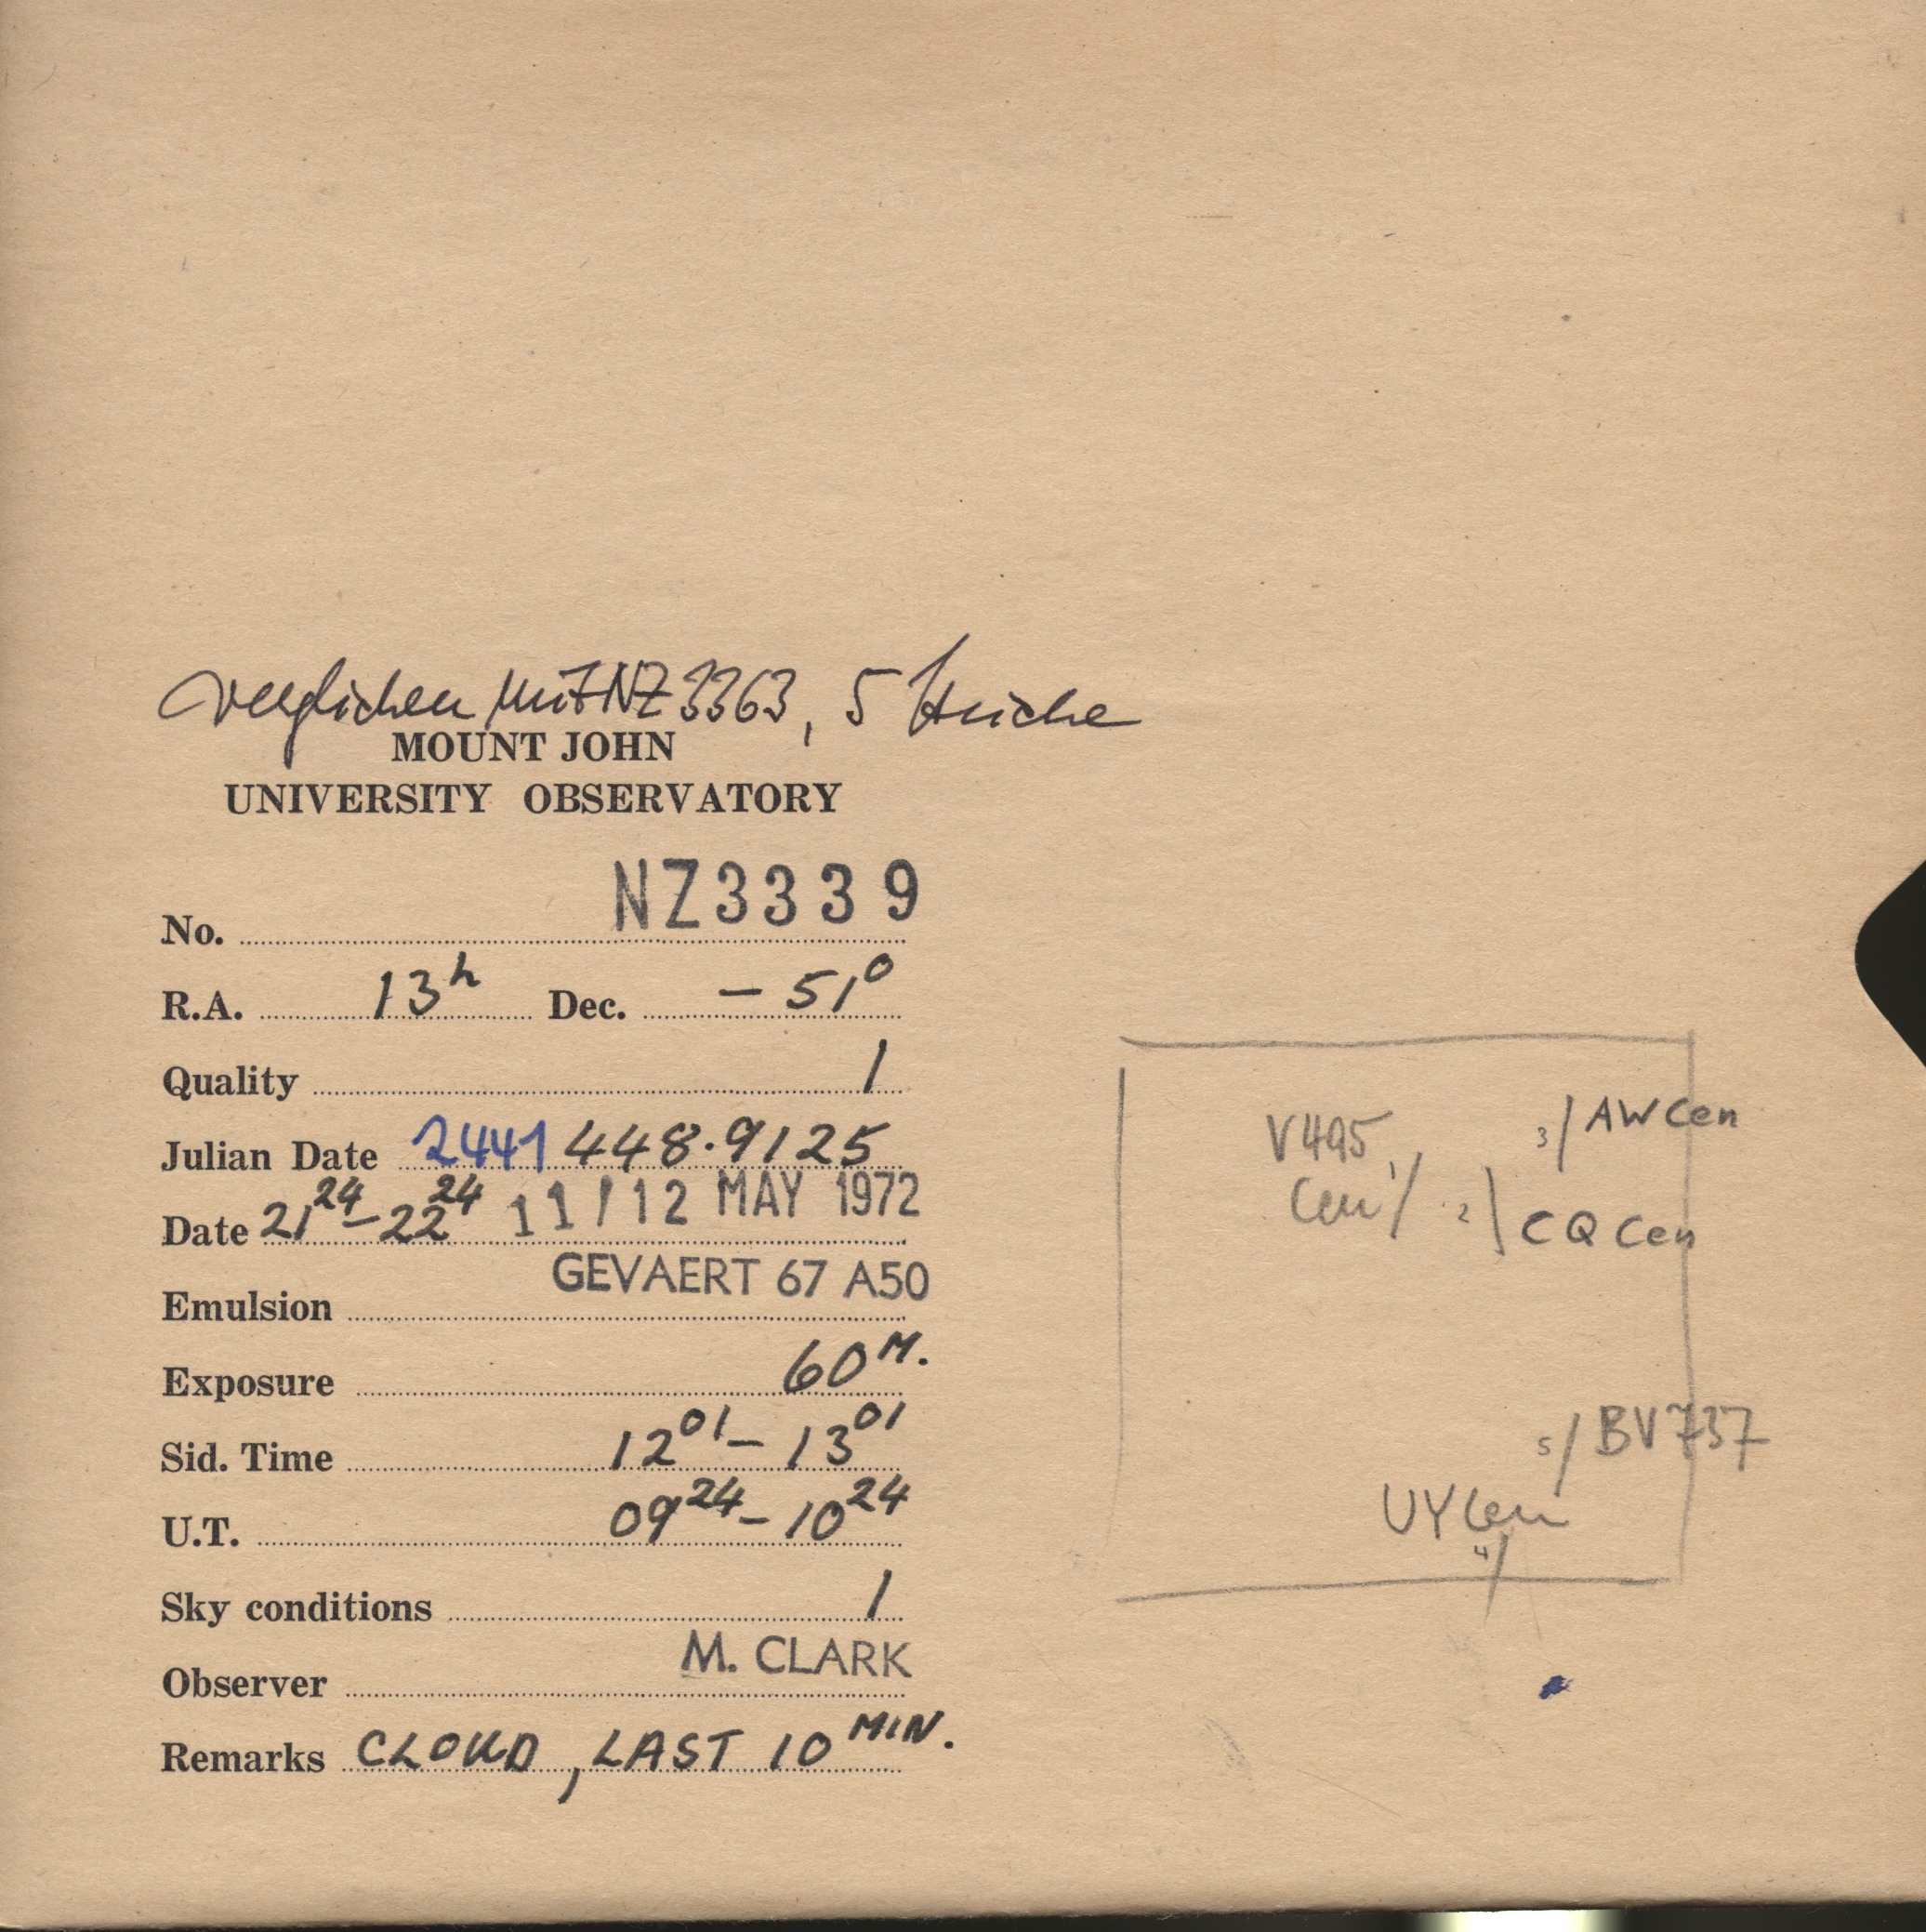 verglichen mit NZ 3363, 5 Striche
MOUNT JOHN
UNIVERSITY OBSERVATORY
No. NZ3339
R.A. 13h Dec. – 51°
Quality 1
Julian Date 2441 448.9125
Date 21 24 – 22 24 11/12 MAY 1972
Emulsion GEVAERT 67 A50
Exposure 60 M.
Sid. Time 12 01 – 13 01
U.T. 09 24 – 10 24
Sky conditions 1
Observer M. CLARK
Remarks CLOUD, LAST 10 MIN.
3 AW Cen
V495
Cen 1
2 CQ Cen
5 BV 737
UY Cen
4